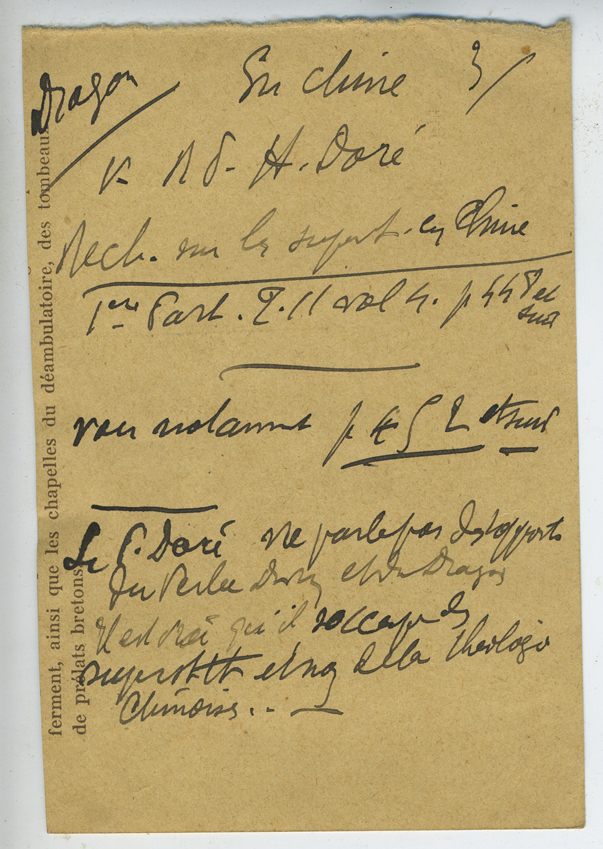 Dragon
En Chine 3/
v. R P. H. Doré
Rech. sur les superst. en Chine
1ère Part. T. II vol 4. p 449 et suiv
voir notamment p 452 et suiv
Le P. Doré ne parle pas des rapports
du et du Dragon
Il est vrai qu'il s'occupe des
superstit et non de la théologie
Chinoise. . —
ferment, ainsi que les chapelles du déambulatoire, des tombeaux
de prélats bretons